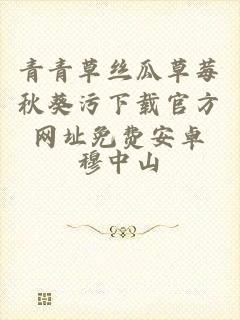 青青草丝瓜草莓
秋葵污下载官方
网址免费安卓
穆中山